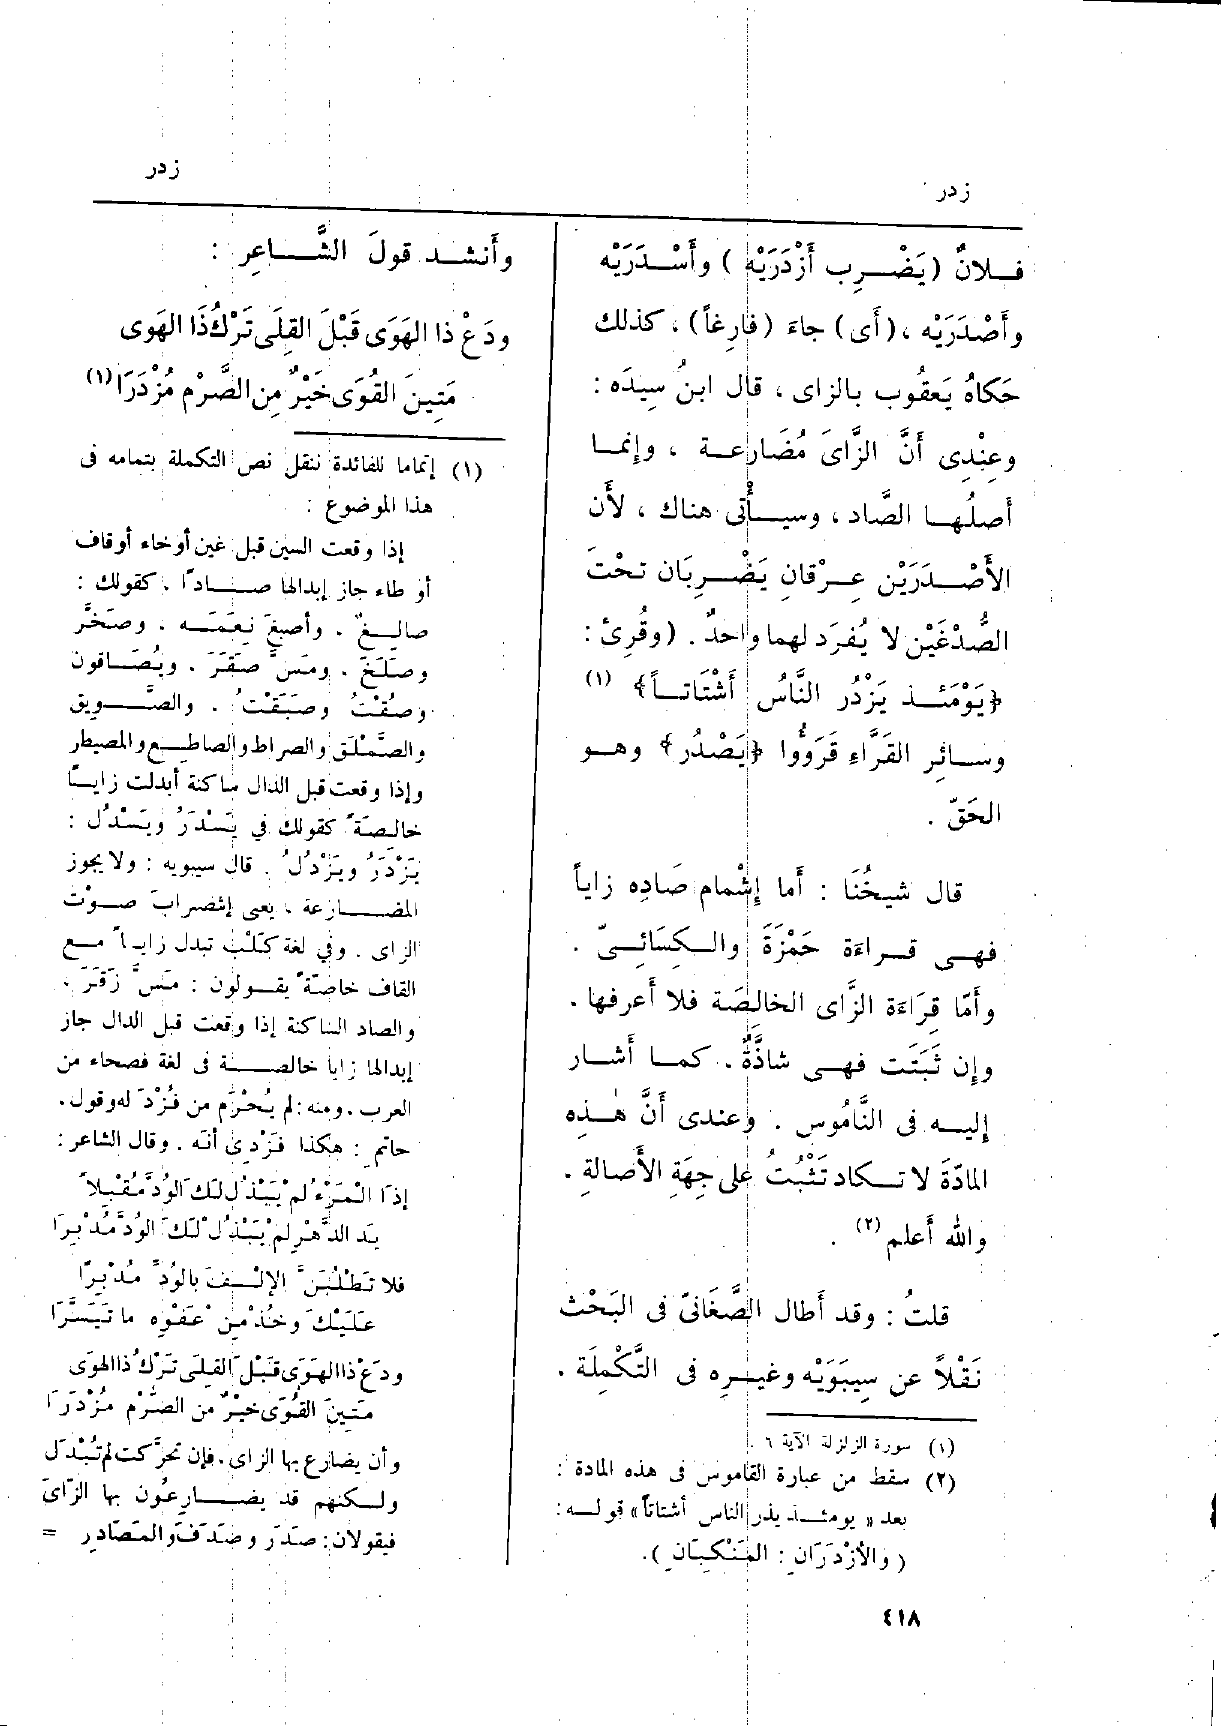 زدر
زدر
فلانٌ (يَضْرِب أَزْدَرَيْه) وأَسْدَرَيْه
وأَصْدَرَيْه ، (أَى) جاءَ (فارِغاً) ، كذلك
حَكاهُ يَعقُوب بالزاى ، قال ابنُ سِيدَه :
وعِنْدِى أَنَّ الزَّاىَ مُضَارِعة ، وإِنما
أَصلُها الصَّاد ، وسيأْتى هناك ، لأَن
الأَصْدَرَيْن عِرْقانِ يَضْرِبَان تحْتَ
الصُّدْغَيْن لا يُفرَد لهما واحدٌ . (وقُرِئ :
﴿يَوْمَئذ يَزْدُر النَّاسُ أَشْتَاتاً﴾ (١)
وسائِر القَرَّاءِ قَرَؤُوا ﴿يَصْدُر﴾ وهو
الحَقّ .
قال شيخُنَا : أَما إِشْمام صَادِه زاياً
فهى قراءَة حَمْزَةَ والكِسَائِىّ .
وأَمّا قِرَاءَة الزَّاى الخالِصَة فلا أَعرفها .
وإِن ثَبَتَت فهى شاذَّةٌ . كما أَشار
إِليه فى النَّامُوس . وعندى أَنَّ هٰذِه
المادّةَ لا تكاد تَثْبُتُ على جِهَةِ الأَصالةِ .
والله أَعلم (٢) .
قلتُ : وقد أَطال الصَّغَانىّ فى البَحْث
نَقْلاً عن سِيبَوَيْه وغيرِه فى التَّكْمِلَة .
(١) سورة الزلزلة الآية ٦ .
(٢) سقط من عبارة القاموس فى هذه المادة :
بعد « يومئذ يذر الناس أشتاتا » قوله :
( والأزْدَرَانِ : المَنْكِبَانِ ) .
وأَنشد قولَ الشَّاعِرِ :
ودَعْ ذا الهَوَى قَبْلَ القِلَى تَرْكُ ذَا الهَوى
مَتِينَ القُوَى خَيْرٌ مِن الصَّرْم مُزْدَرَا (١)
(١) إتماما للفائدة ننقل نص التكملة بتمامه فى
هذا الموضوع :
إذا وقعت السين قبل غين أو خاء أو قاف
أو طاء جاز إبدالها صادًا . كقولك :
صالِغٌ . وأصبغَ نِعَمَه . وصَخَّر
وصَلَخَ . ومَسَّ صَقَرَ . ويُصَاقون
وصُقْتُ وصَبَقْتُ . والصَّويق
والصَّمْلَق والصراط والصاطِع والمصيطر
وإذا وقعت قبل الدال ساكنة أبدلت زايًا
خالِصَةً كقولك في يَسْدَرُ ويَسْدُلُ :
يَزْدَرُ ويَزْدُلُ . قال سيبويه : ولا يجوز
المضارعة ، يعنى إشْرابَ صوْت
الزاى . وفي لغة كَلْب تبدل زاياً مع
القاف خاصّةً يقولون : مَسَّ زَقَرَ .
والصاد الساكنة إذا وقعت قبل الدال جاز
إبدالها زايا خالصة فى لغة فصحاء من
العرب . ومنه : لم يُحْرَم من فُزْدَ له وقول .
حاتم : هكذا فَزْدِى أنَه . وقال الشاعر :
إذَا الْمَرْءُ لمْ يَبْذُل لَكَ الوُدَّ مُقْبِلاً
يَد الدَّهْرِ لمْ يَبْذُلْ لَكَ الوُدَّ مُدْبِرَا
فلا تَطْلُبَنَّ الإِلْفَ بالوُدِّ مُدْبِرًا
عَلَيْكَ وخُذْ مِنْ عَفْوِه ما تَيَسَّرَا
ودَعْ ذا الهَوَى قَبْلَ القِلَى تَرْكُ ذا الهَوَى
مَتِينَ القُوَى خَيْرٌ من الصُّرْمِ مُزْدَرَا
وأن يضارع بها الزاى ، فإن تحرَّكت لم تُبْدَل
ولكنهم قد يضارِعُون بها الزّاىَ
فيقولان : صَدَرَ وصَدَفَ والمَصَادِر =
٤١٨